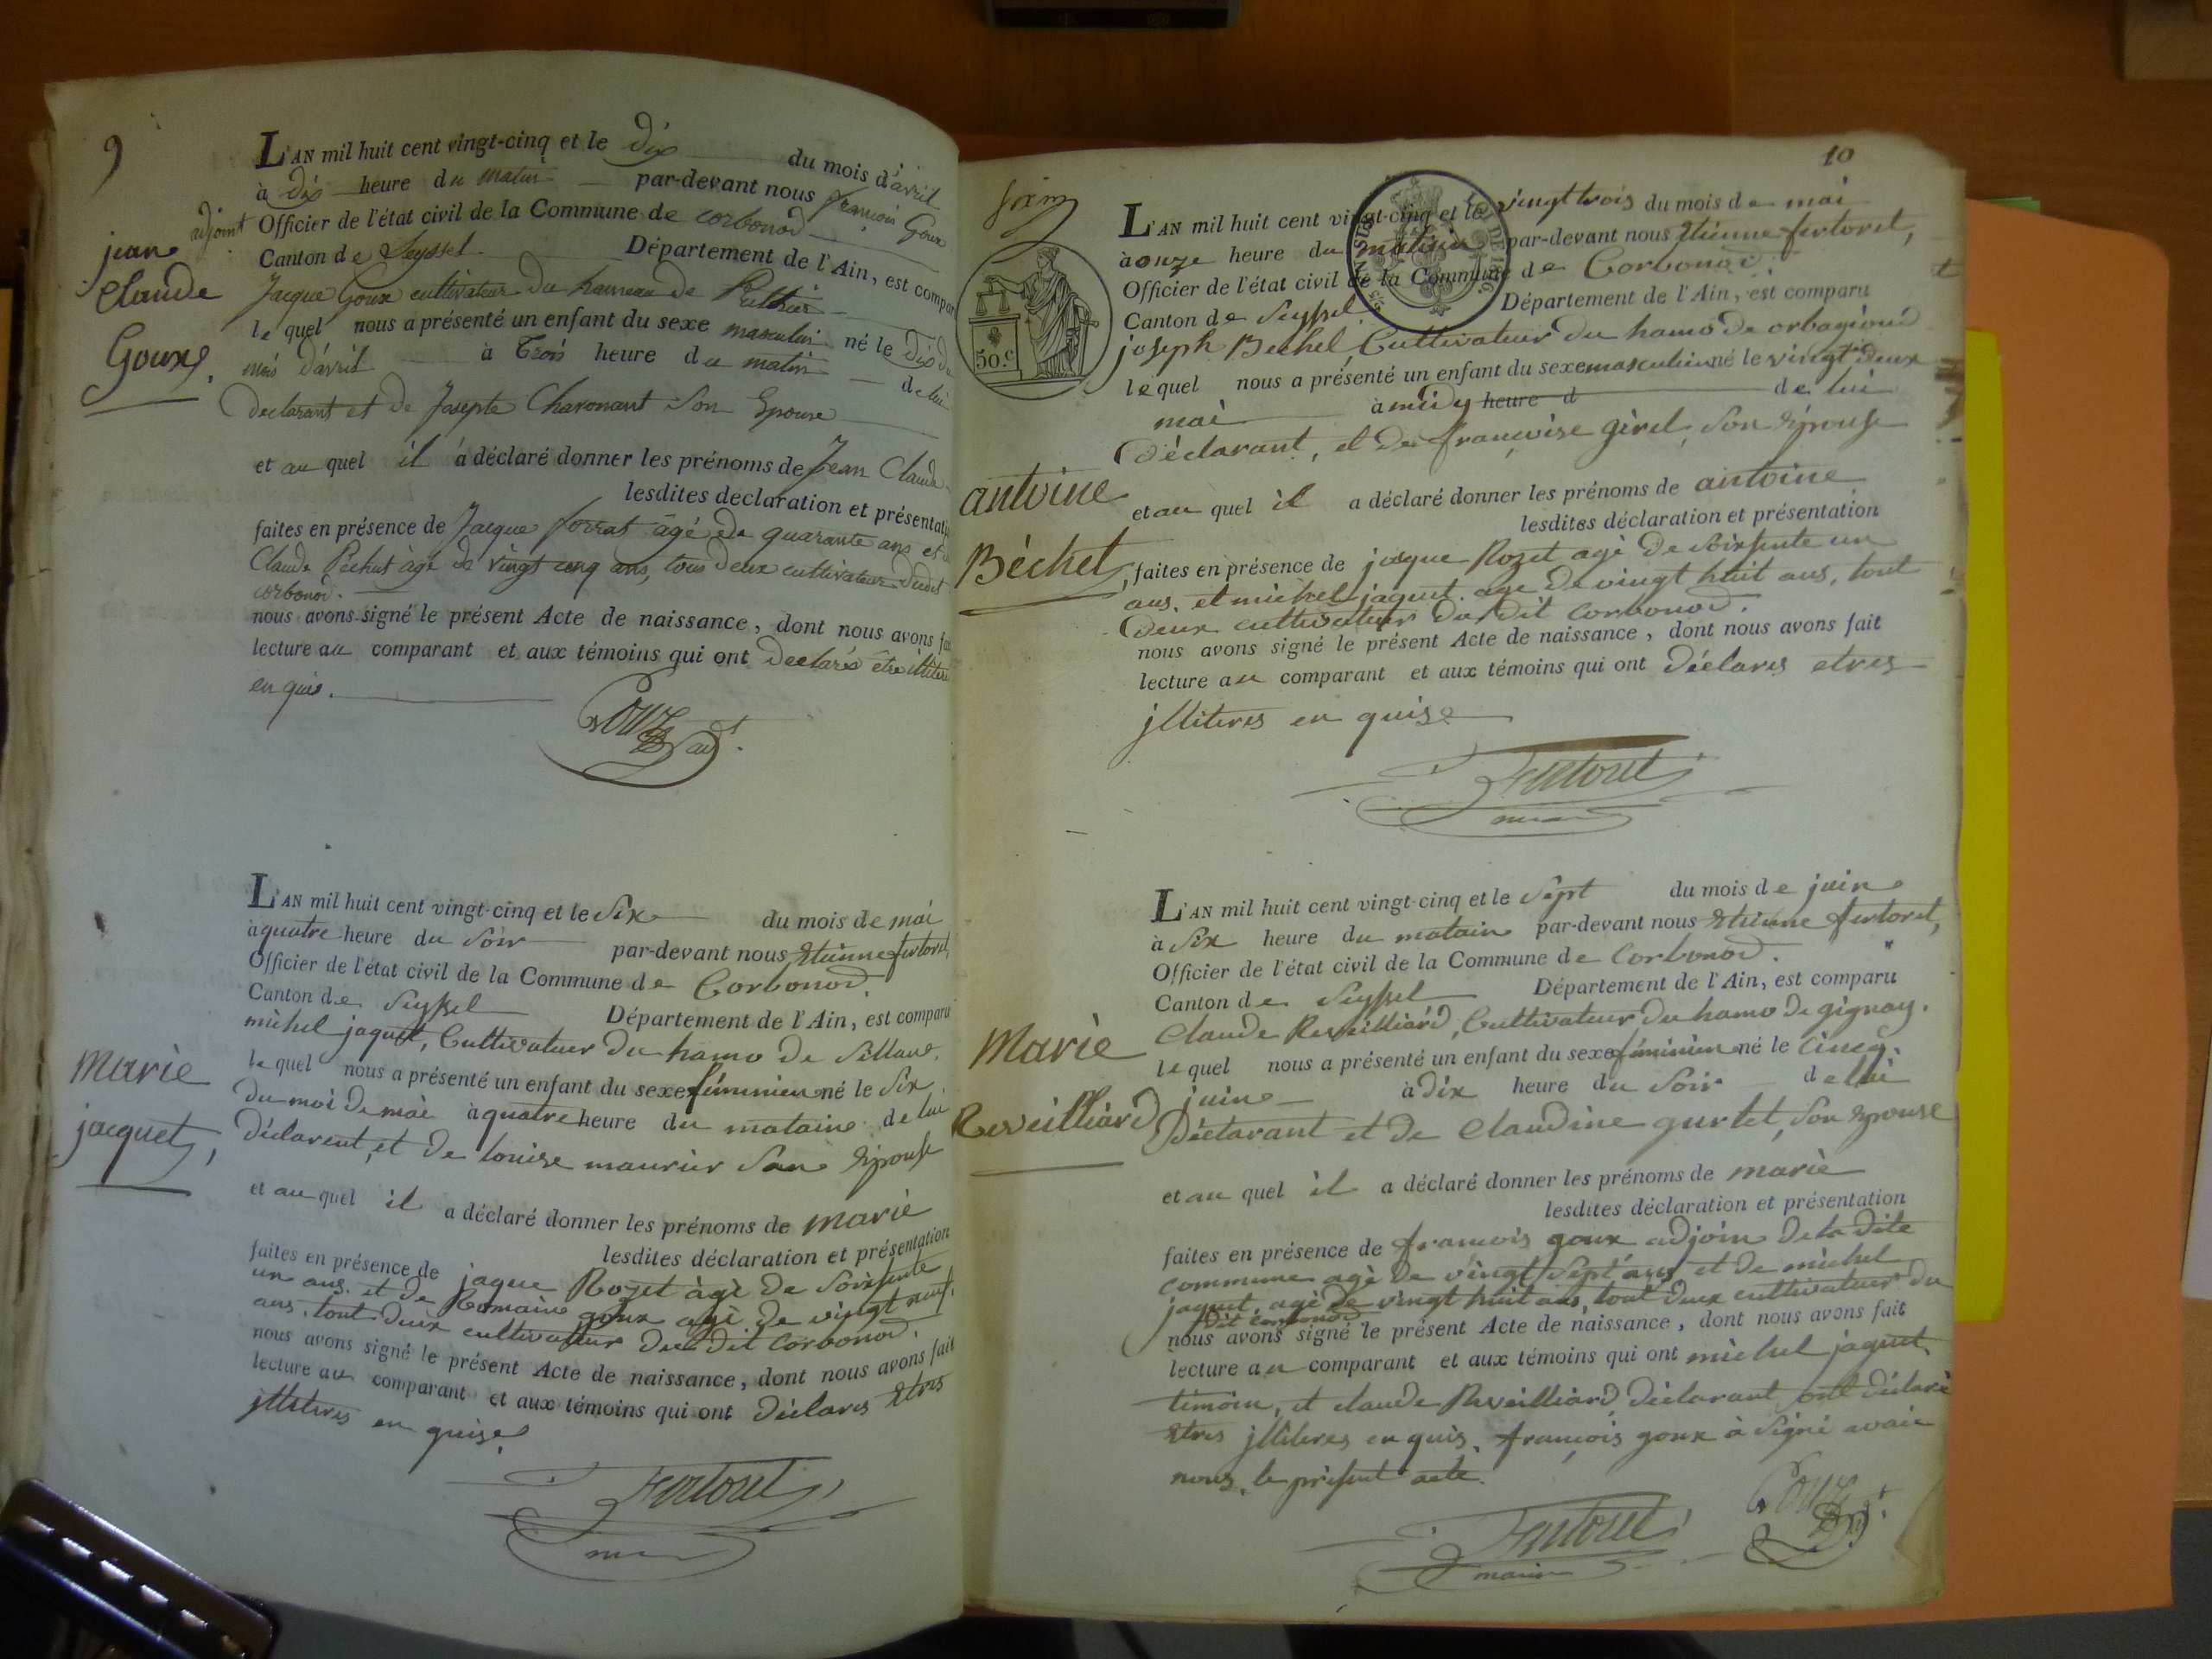 9
jean
Claude
Goux
L'AN mil huit cent vingt-cinq et le Dix du mois d'avril
à dix heure du matin par-devant nous françois Goux
adjoint Officier de l'état civil de la Commune de corbonod
Canton de Seyssel Département de l'Ain, est compar
Jacque Goux cultivateur du hameau de
le quel nous a présenté un enfant du sexe masculin né le Dix du
mois d'avril à trois heure du matin de lui
declarant et de Josepte Charonant Son Epouse
et au quel il a déclaré donner les prénoms de Jean Claude
lesdites declaration et présentati
faites en présence de Jacque forrat âgé de quarante ans et de
Claude Pechut âgé de vingt cinq ans, tous deux cultivateur dudit
corbonod.
nous avons signé le présent Acte de naissance, dont nous avons fai
lecture au comparant et aux témoins qui ont declarés être illitere
en quis.
Goux adt.
Marie
jacquet,
L'AN mil huit cent vingt-cinq et le Six du mois de mai
à quatre heure du Soir par-devant nous Etienne fertoret,
Officier de l'état civil de la Commune de Corbonod,
Canton de Seyssel Département de l'Ain, est comparu
michel jaquet, Cultivateur du hamo de Sillans,
le quel nous a présenté un enfant du sexe féminien né le Six
du moi de mai à quatre heure du mataine de lui
déclarent, et de louise maurier Son Epouse
et au quel il a déclaré donner les prénoms de marie
lesdites déclaration et présentation
faites en présence de jaque Rozet agè de Soixsente
un ans, et de Romaine goux agè de vingt neuf,
ans, tout deux cultivateur du dit Corbonod.
nous avons signé le présent Acte de naissance, dont nous avons fait
lecture au comparant et aux témoins qui ont déclares Etres
jlliteres en quise,
Fertoret
maire
10
50.c
antoine
Béchet,
L'AN mil huit cent vingt-cinq et le vingt trois du mois de mai
à onze heure du matain par-devant nous Etienne fertoret,
Officier de l'état civil de la Commune de Corbonod.
Canton de Seyssel Département de l'Ain, est comparu
joseph Bechet, Cultivateur du hamo de orbagnoud
le quel nous a présenté un enfant du sexe masculien né le vingt deux
mai à midy heure d de lui
déclarant, et de françoise girel, Son Epouse
et au quel il a déclaré donner les prénoms de antoine
lesdites déclaration et présentation
faites en présence de jaque Rozet agè de Soixsente un
ans, et michel jaquet agé de vingt huit ans, tout
deux cultivateur du dit corbonod.
nous avons signé le présent Acte de naissance, dont nous avons fait
lecture au comparant et aux témoins qui ont déclares etres
jlliteres en quise
Fertoret
maire
Marie
Reveilliard
L'AN mil huit cent vingt-cinq et le Sept du mois de juin
à Six heure du matain par-devant nous Etienne fertoret,
Officier de l'état civil de la Commune de Corbonod.
Canton de Seyssel Département de l'Ain, est comparu
Claude Reveilliard, Cultivateur du hamo de gignay.
le quel nous a présenté un enfant du sexe féminien né le Cincq.
juin à dix heure du Soir de lui
Déclarant et de Claudine gurlet, Son Epouse
et au quel il a déclaré donner les prénoms de marie
lesdites déclaration et présentation
faites en présence de francois goux adjoin de la dite
commune agè de vingt Sept ans et de michel
jaquet, agè de vingt huit ans, tout deux cultivateur du
dit corbonod
nous avons signé le présent Acte de naissance, dont nous avons fait
lecture au comparant et aux témoins qui ont michel jaquet,
témoin, et claude Reveilliard déclarant ont déclaré
Etres jlliteres en quis, françois goux à Signé avaic
nous, le présent acte.
Fertoret
maire
Goux adt.